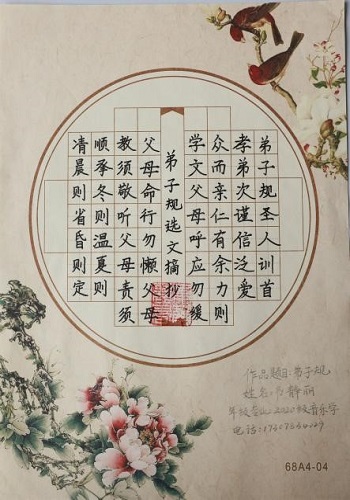 弟子规圣人训首
孝弟次谨信泛爱
众而亲仁有余力则
学文父母呼应勿缓
弟子规选文摘抄
父母命行勿懒父母
教须敬听父母责须
顺承冬则温夏则
凊晨则省昏则定
作品题目:弟子规
68A4-04